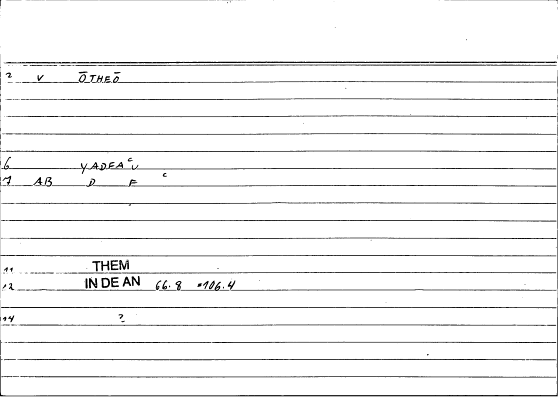 2 V ŌTHEŌ
6 YADEAᶜU
7 AB D F ᶜ
11 THEM
12 IN DE AN 66.8 =106.4
14 ?